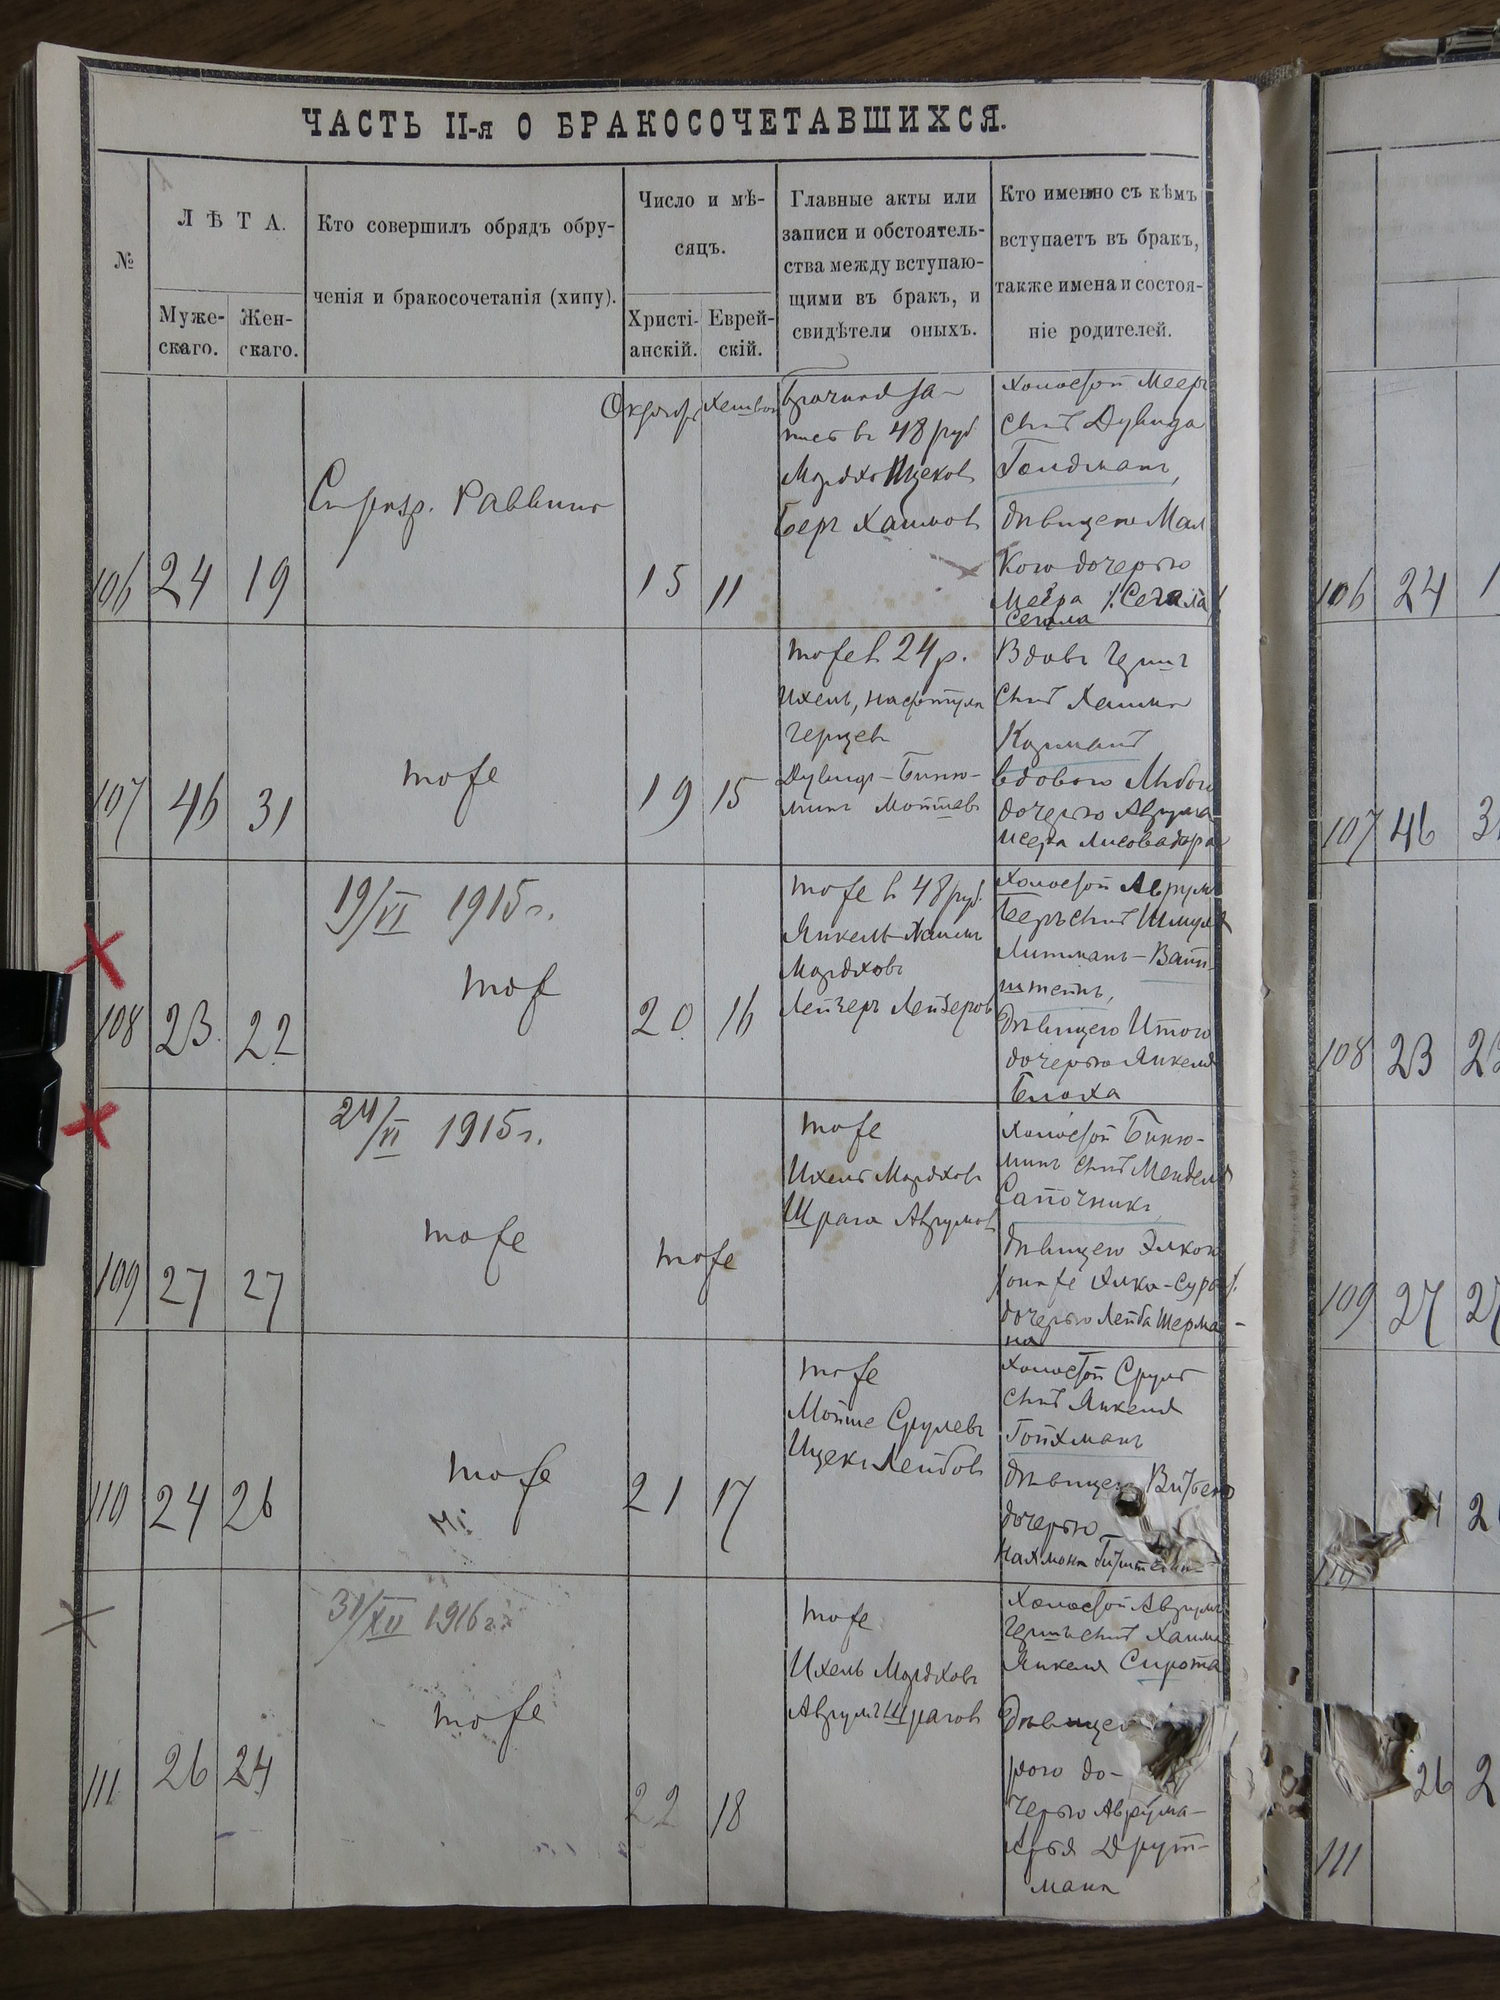 ЧАСТЬ II-я О БРАКОСОЧЕТАВШИХСЯ.
№
ЛѢТА.
Муже-
скаго.
Жен-
скаго.
Кто совершилъ обрядъ обру-
ченія и бракосочетанія (хипу).
Число и мѣ-
сяцъ.
Христі-
анскій.
Еврей-
скій.
Главные акты или
записи и обстоятель-
ства между вступаю-
щими въ бракъ, и
свидѣтели оныхъ.
Кто именно съ кѣмъ
вступаетъ въ бракъ,
также имена и состоя-
ніе родителей.
106
24
19
Раввинъ
15
11
Брачная за-
пись въ 48 руб
Мордхо Ицековъ
Беръ Хаимовъ
Холостой Мееръ
сынъ Дувида
Гольдманъ,
дѣвицею Мал
кою дочерью
Меера /:Сегала:/
Сегала
107
46
31
тоже
19
15
тоже въ 24 р.
Ихель, Нафтула
Герцевъ
Дувидъ-Биню-
минъ Мотевъ
Вдовъ Гершъ
сынъ Хаима
вдовою Либою
дочерью Аврума
108
23
22
19/VI 1915 г.
тож
20
16
тоже въ 48 руб.
Янкель-Хаимъ
Мордховъ
Лейзеръ Лейзеровъ
Холостой Аврумъ
Беръ сынъ Шмуля
Литманъ-Вайн-
штейнъ,
дѣвицею Итою
дочерью Янкеля
Блоха
109
27
27
24/VI 1915 г.
тоже
тоже
тоже
Ихель Мордховъ
Шрага Аврумовъ
Холостой Биню-
минъ сынъ Менделя
Сапожникъ
дѣвицею Элкою
/она же Элка-Сура/.
дочерью Лейба Шерма-
на
110
24
26
тоже
21
17
тоже
Мойше Срулевъ
Ицекъ Лейбовъ
Холостой Сруль
сынъ Янкеля
Гойхманъ
дочерью
111
26
24
31/XII 1916 г.
тоже
22
18
тоже
Ихель Мордховъ
Аврумъ Шраговъ
Холостой Аврумъ
Гершъ сынъ Хаима
Янкеля Сирота
Дѣвицею
до-
черью Аврума-
Друт-
мана
106
24
107
46
108
23
109
27
110
26
111